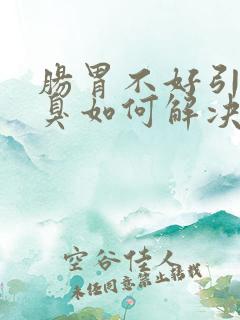 腸胃不好引
臭如何解决
空谷佳人
未经同意禁止转载